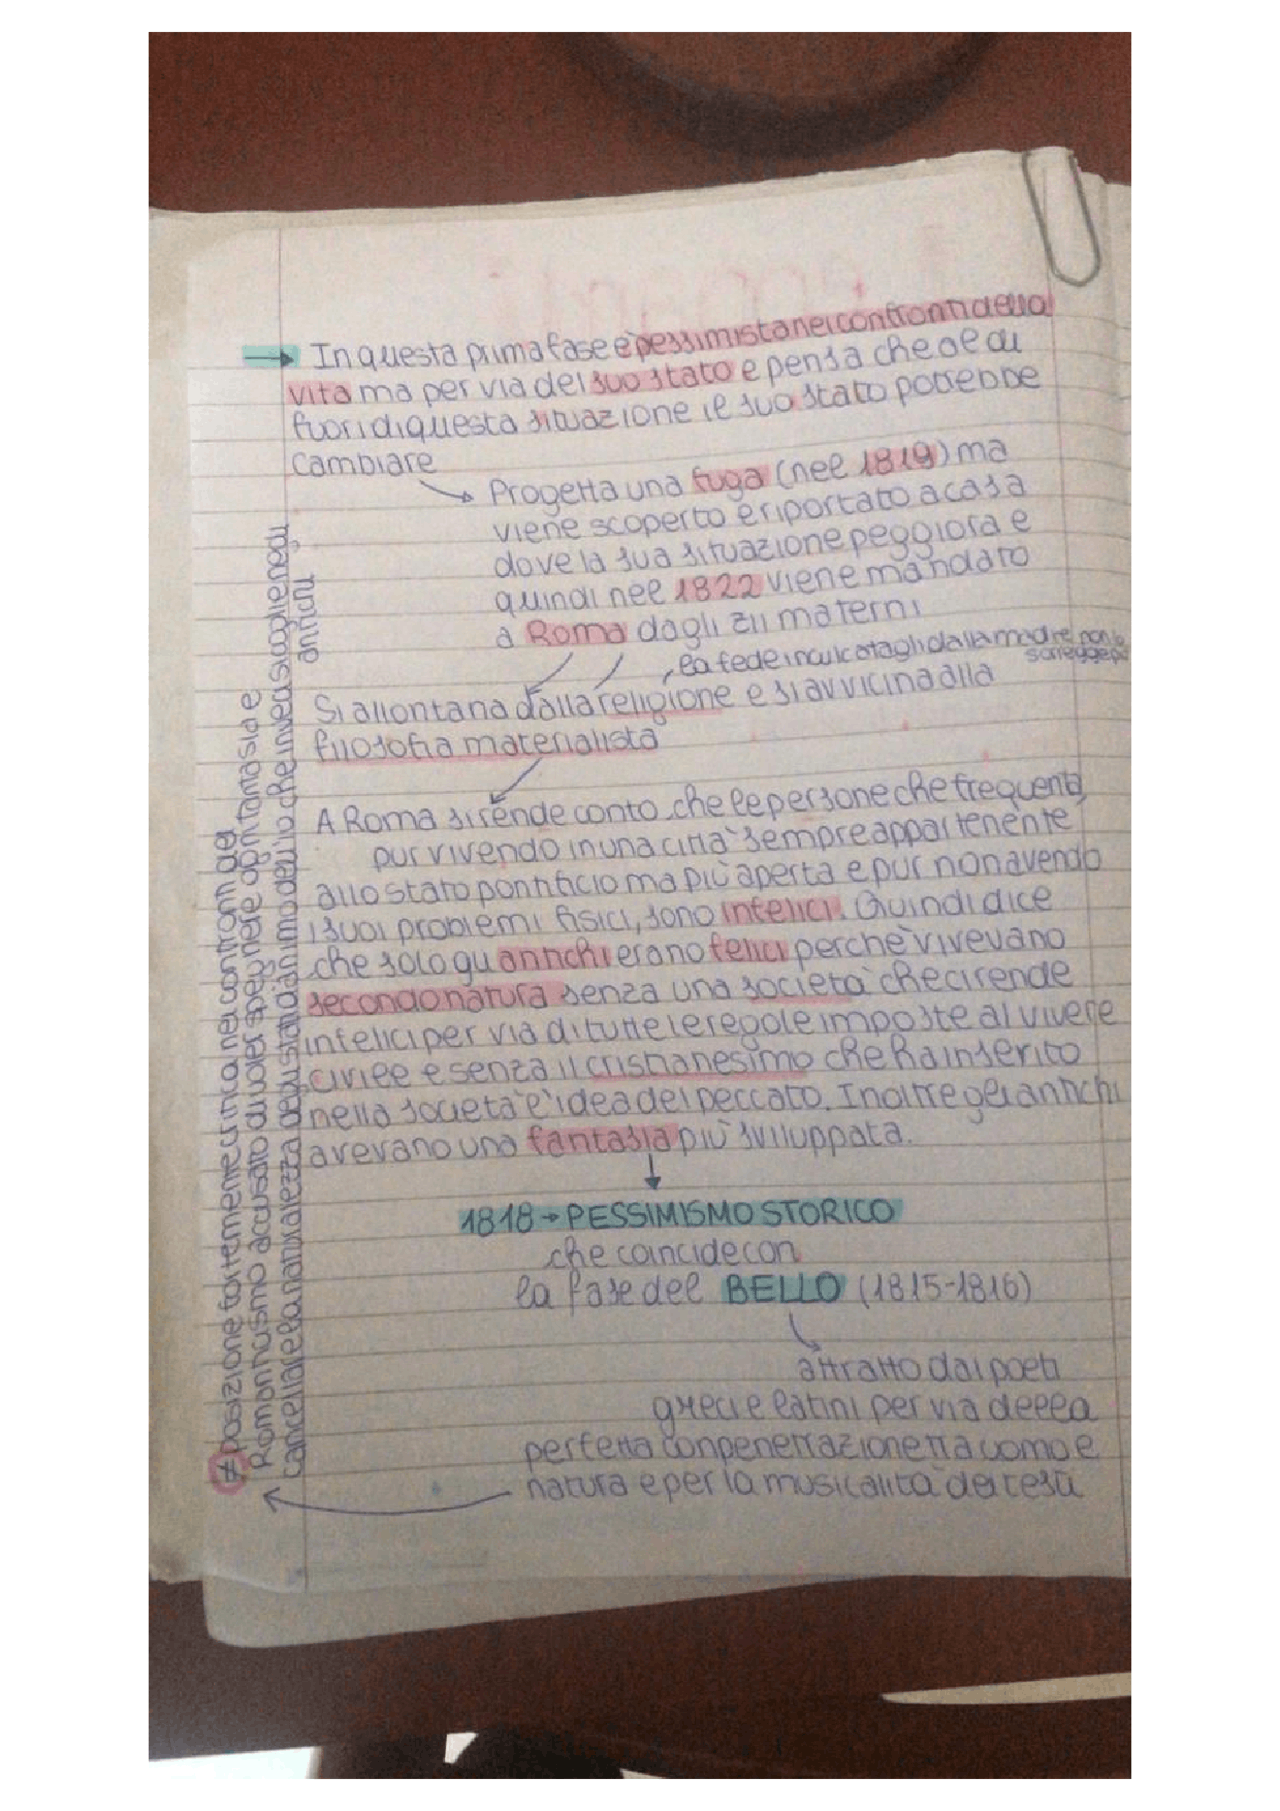 In questa prima fase è pessimista nei confronti della
vita ma per via del suo stato e pensa che al di
fuori di questa situazione il suo stato potrebbe
cambiare
Progetta una fuga (nel 1819) ma
viene scoperto e riportato a casa
dove la sua situazione peggiora e
quindi nel 1822 viene mandato
a Roma dagli zii materni
la fede inculcatagli dalla madre non lo
sorregge più
Si allontana dalla religione e si avvicina alla
filosofia materialista
A Roma si rende conto che le persone che frequenta,
pur vivendo in una città sempre appartenente
allo stato pontificio ma più aperta e pur non avendo
i suoi problemi fisici, sono infelici. Quindi dice
che solo gli antichi erano felici perché vivevano
secondo natura senza una società che ci rende
infelici per via di tutte le regole imposte al vivere
civile e senza il cristianesimo che ha inserito
nella società l'idea del peccato. Inoltre gli antichi
avevano una fantasia più sviluppata.
1818 → PESSIMISMO STORICO
che coincide con
la fase del BELLO (1815-1816)
attratto dai poeti
greci e latini per via della
perfetta conpenetrazione tra uomo e
natura e per la musicalità dei testi
posizione fortemente critica nei confronti del
Romanticismo accusato di voler spegnere ogni fantasia e
cancellare la naturalezza degli stati d'animo dell'io che invece si coglie negli
antichi